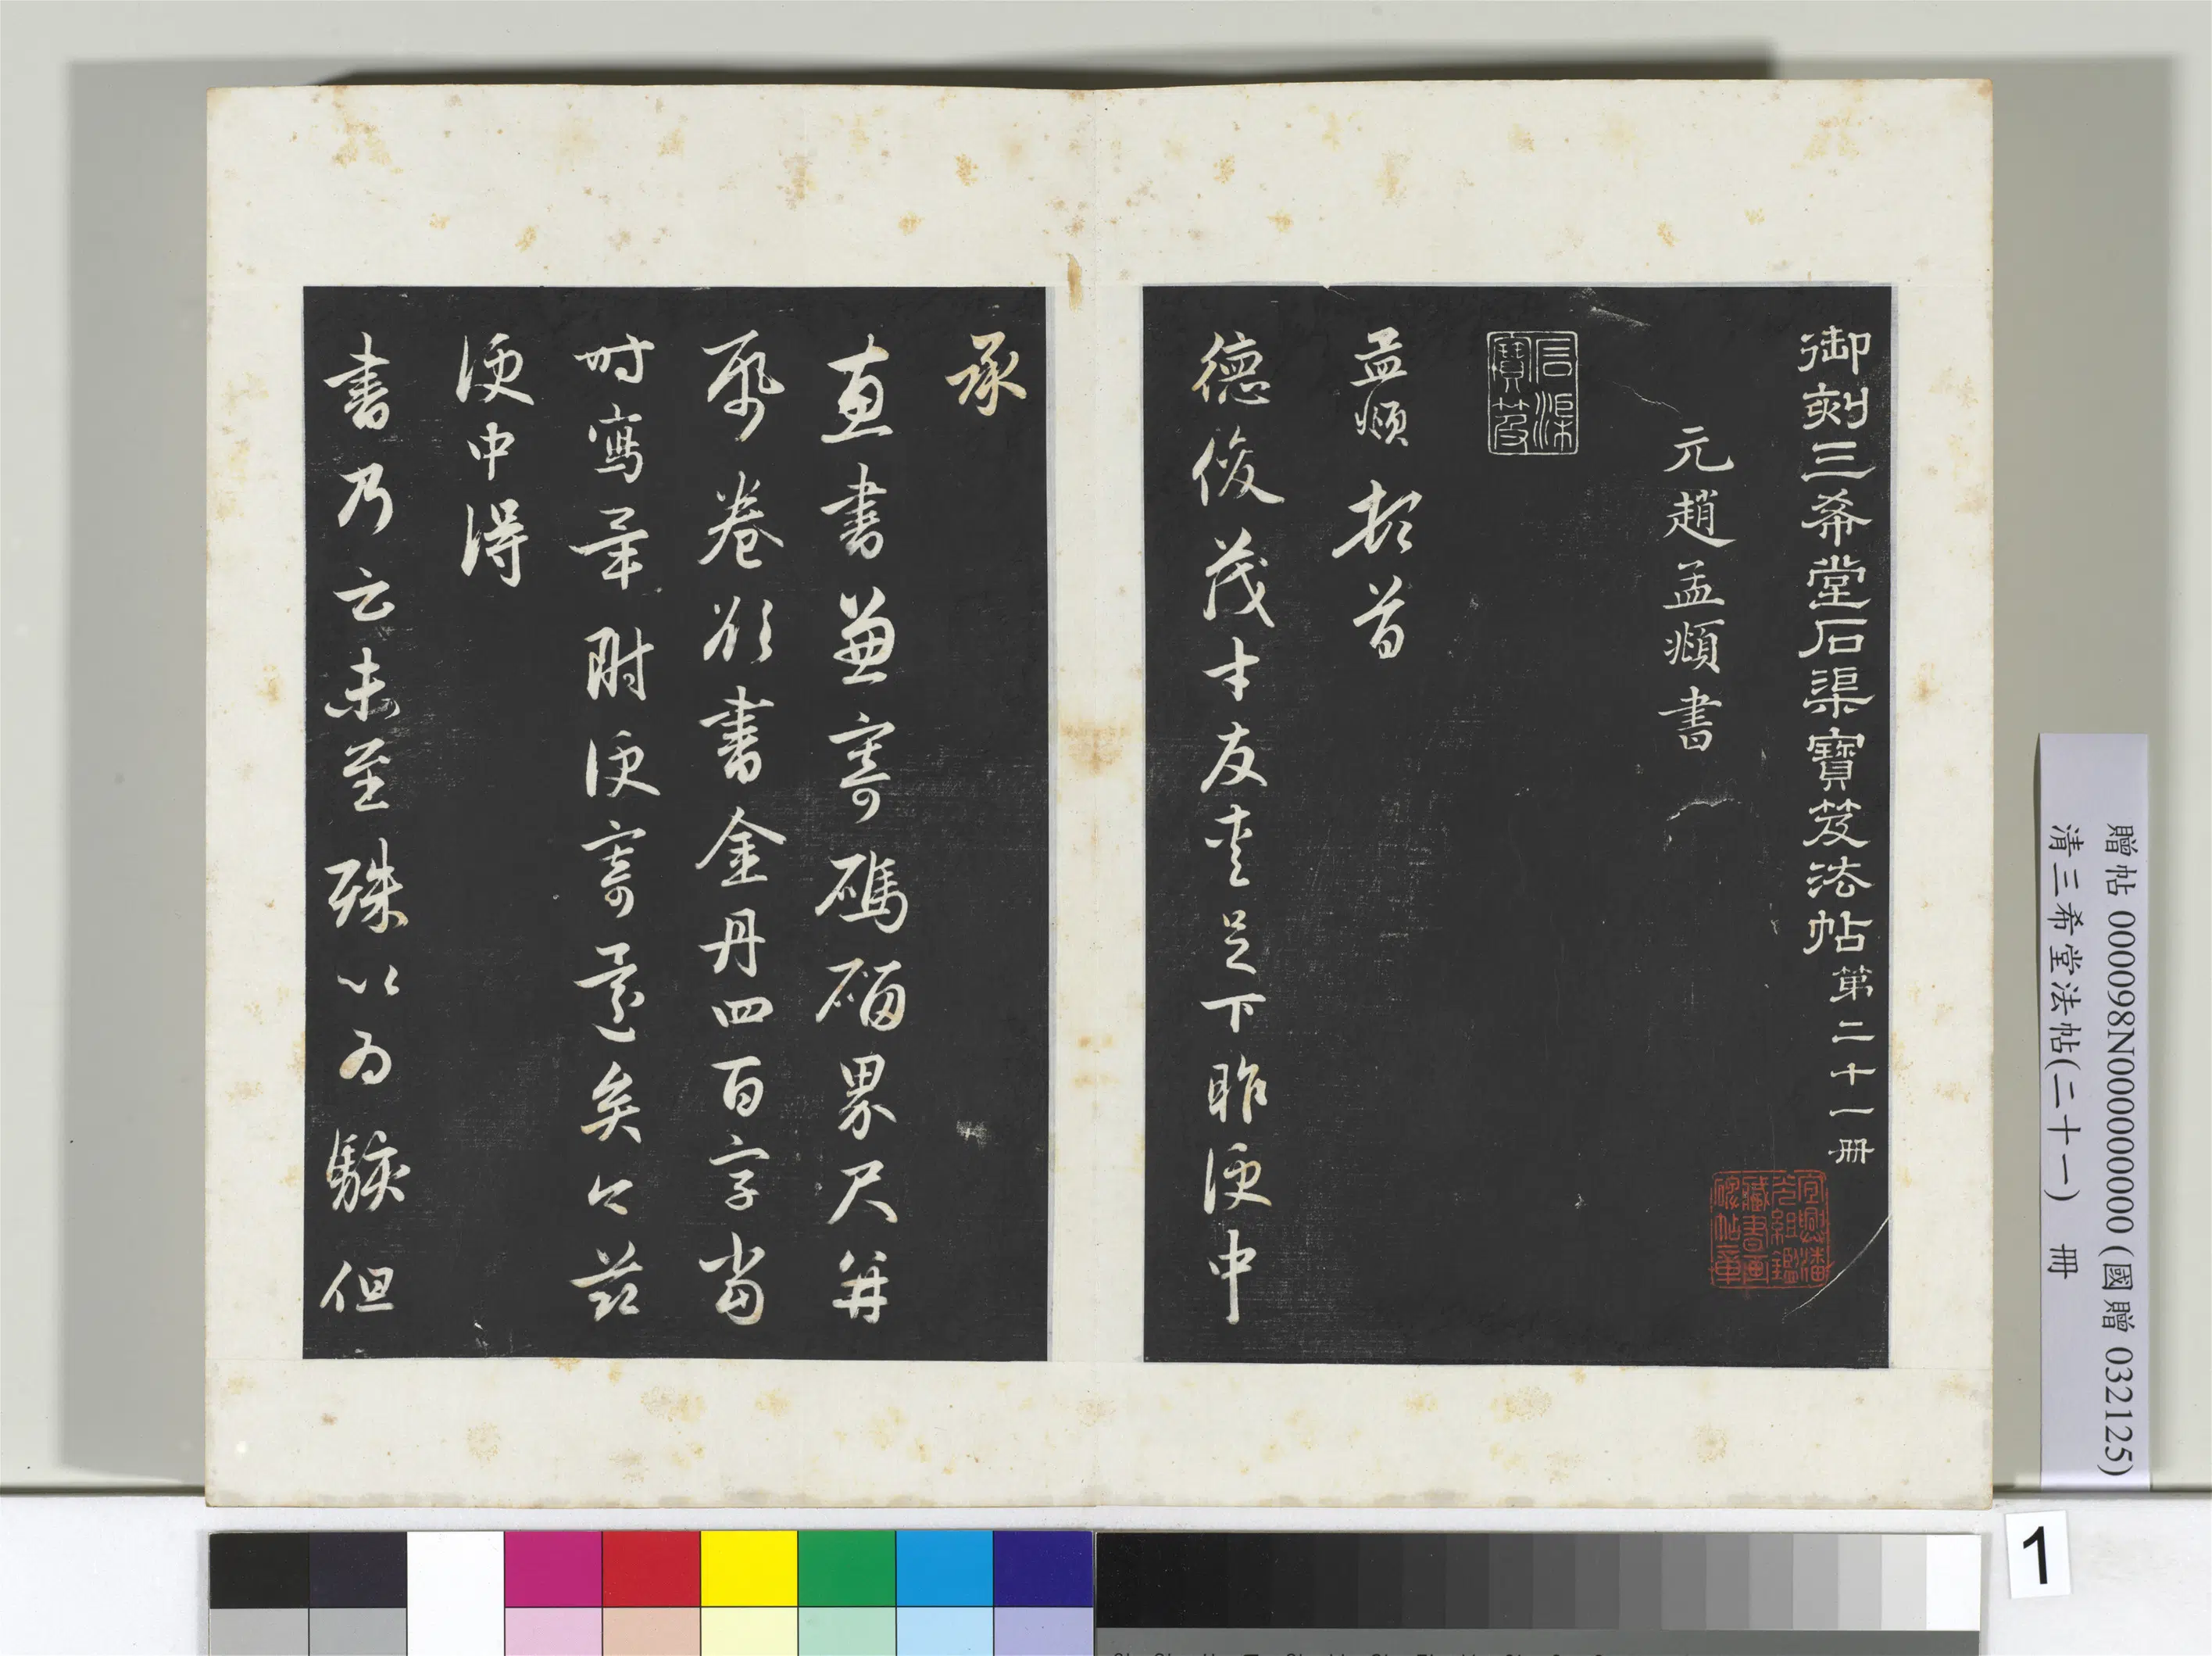 御刻三希堂石渠寶笈法帖第二十一册
元趙孟頫書
石渠寶笈
孟頫頓首
德俊茂才友愛足下昨便中
承
惠書兼寄碼碯界尺并
紙卷欲書金丹四百字當
時寫畢附便寄還矣今茲
便中得
書乃云未至殊以為駭但
贈帖 000098N000000000 (國贈 032125)
清三希堂法帖(二十一) 冊
1